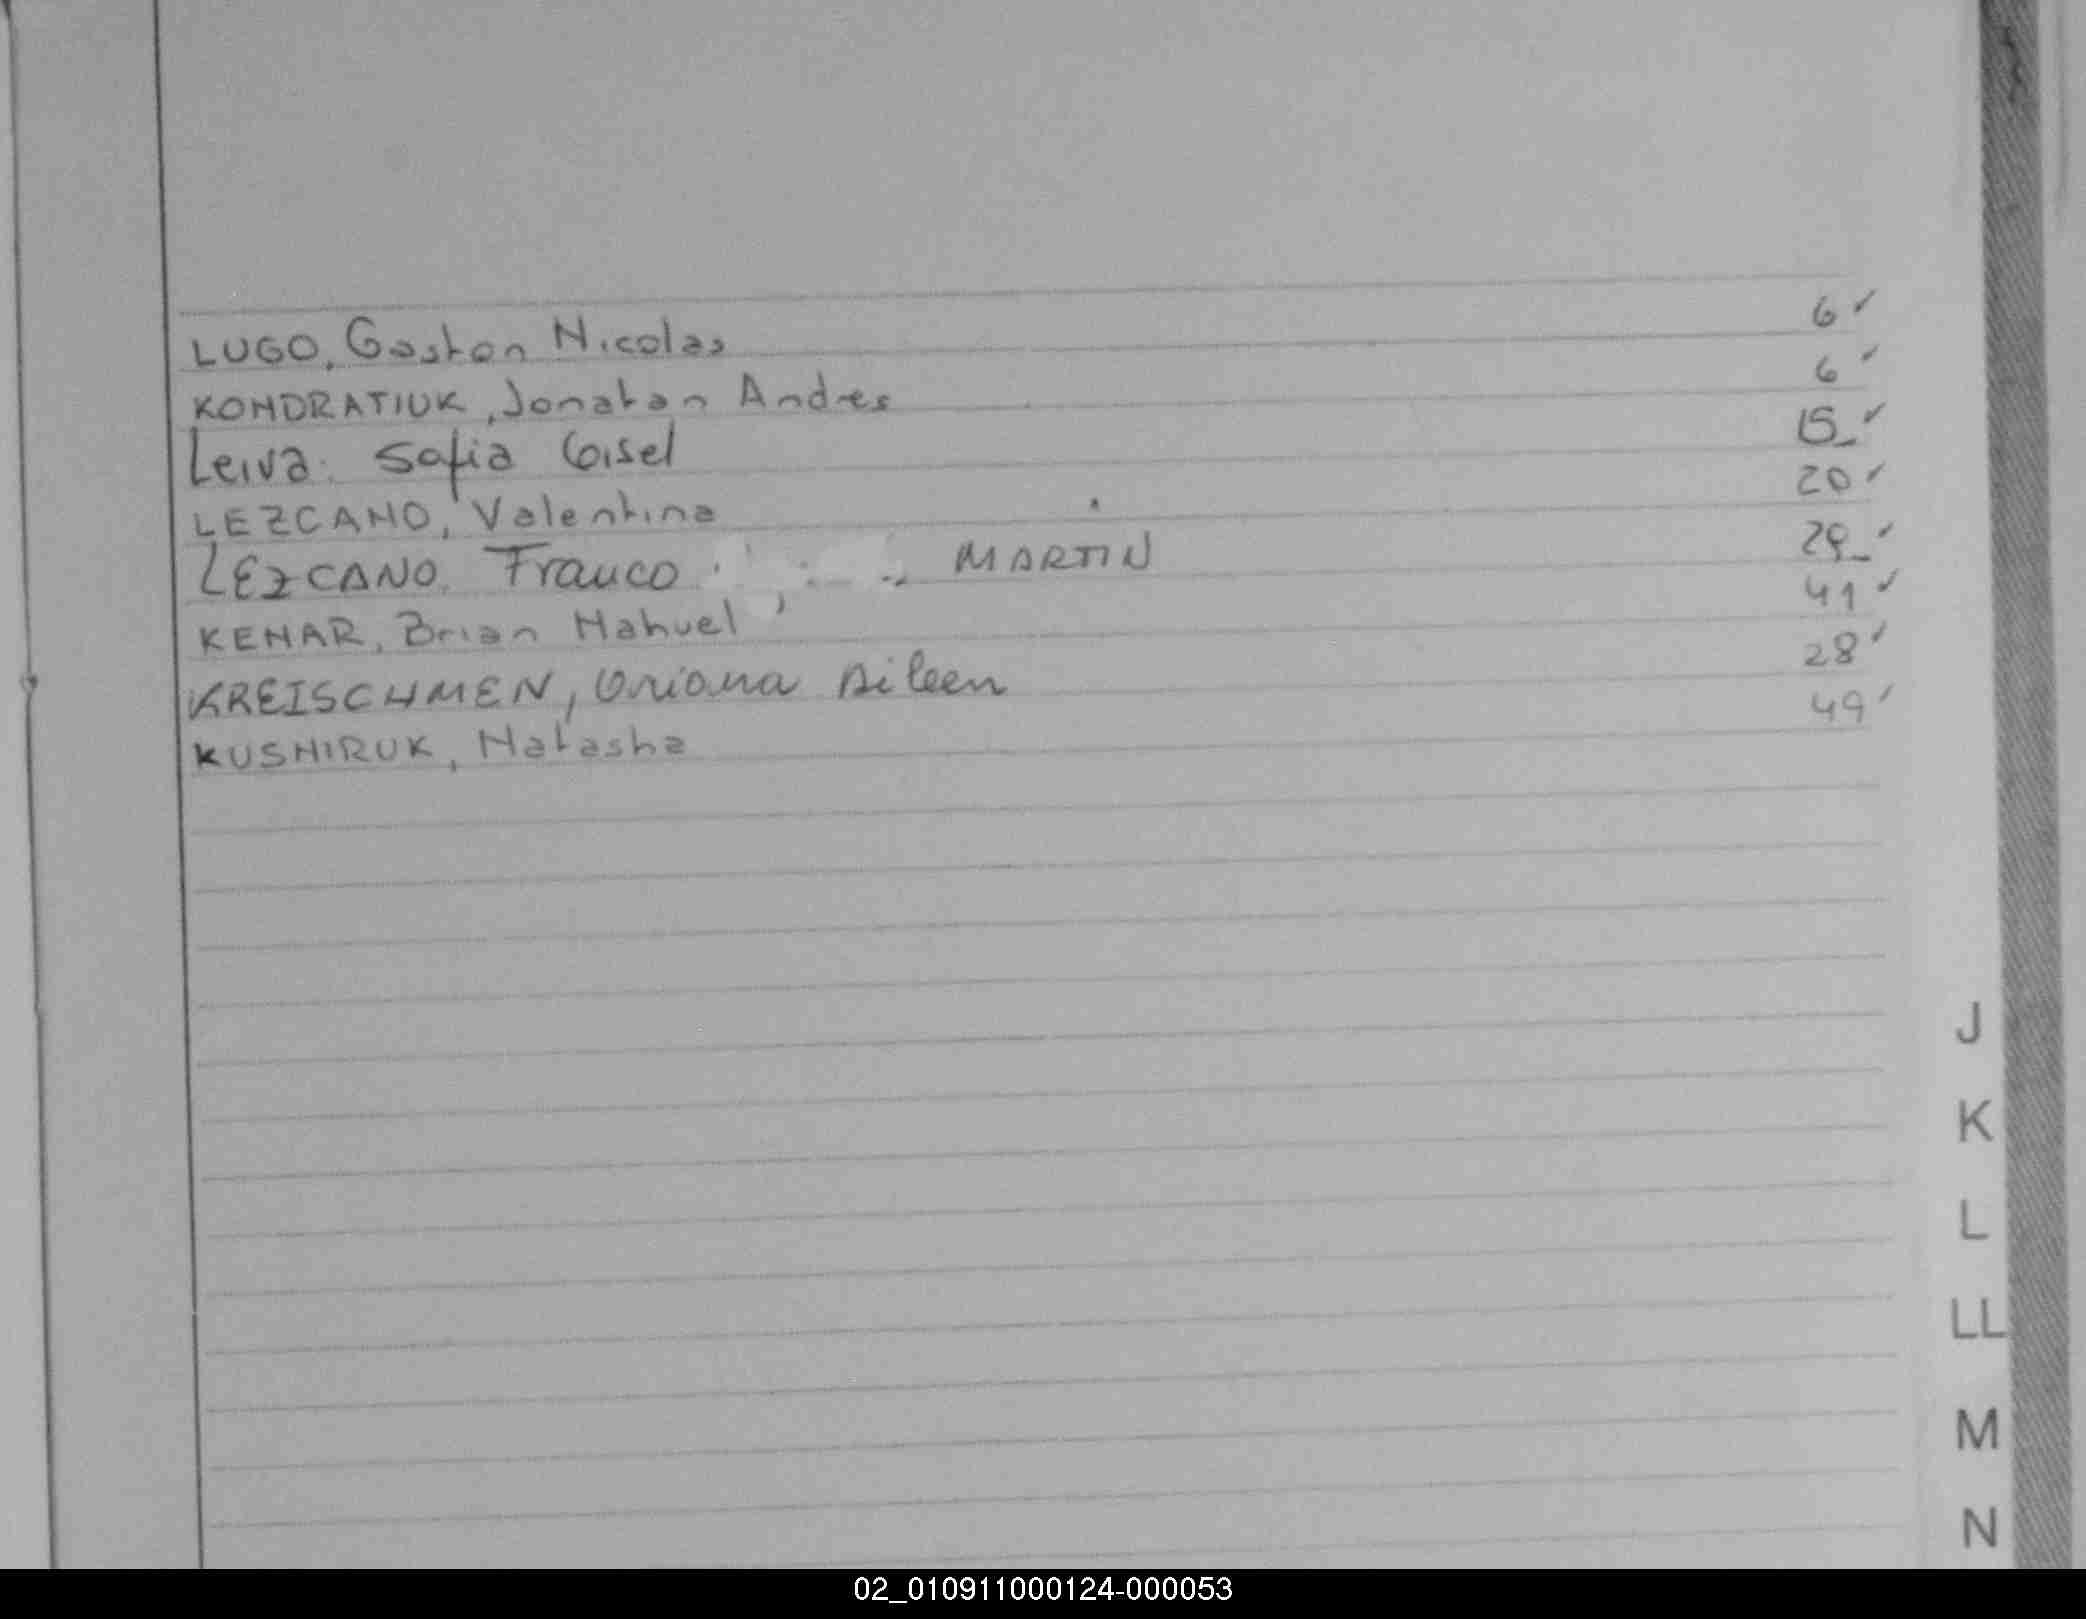 LUGO, Gaston Nicolas 6 ✓
KONDRATIUK, Jonatan Andres 6 ✓
Leiva. Sofia Gisel 15_ ✓
LEZCANO, Valentina 20 ✓
LEZCANO, Franco MARTIN 29_ ✓
KENAR, Brian Nahuel 41 ✓
KREISCHMEN, Oriana Aileen 28 ✓
KUSHIRUK, Natasha 49 ✓
J
K
L
LL
M
N
02_010911000124-000053